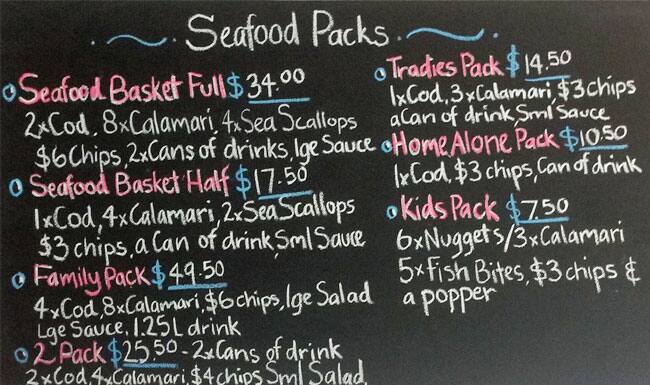 Seafood Packs
Seafood Basket Full $34.00
2xCod, 8xCalamari, 4xSea Scallops
$6Chips, 2xCans of drinks, lge Sauce
Seafood Basket Half $17.50
1xCod, 4xCalamari, 2xSea Scallops
$3 chips, a Can of drink, Sml Sauce
Family Pack $49.50
4xCod, 8xCalamari, $6 chips, lge Salad
Lge Sauce, 1.25L drink
2 Pack $25.50 - 2xCans of drink
2xCod, 4xCalamari, $4 chips Sml Salad,
Tradies Pack $14.50
1xCod, 3xCalamari, $3 chips
a Can of drink, Sml Sauce
Home Alone Pack $10.50
1xCod, $3 chips, Can of drink
Kids Pack $7.50
6xNuggets/3xCalamari
5xFish Bites, $3 chips &
a popper